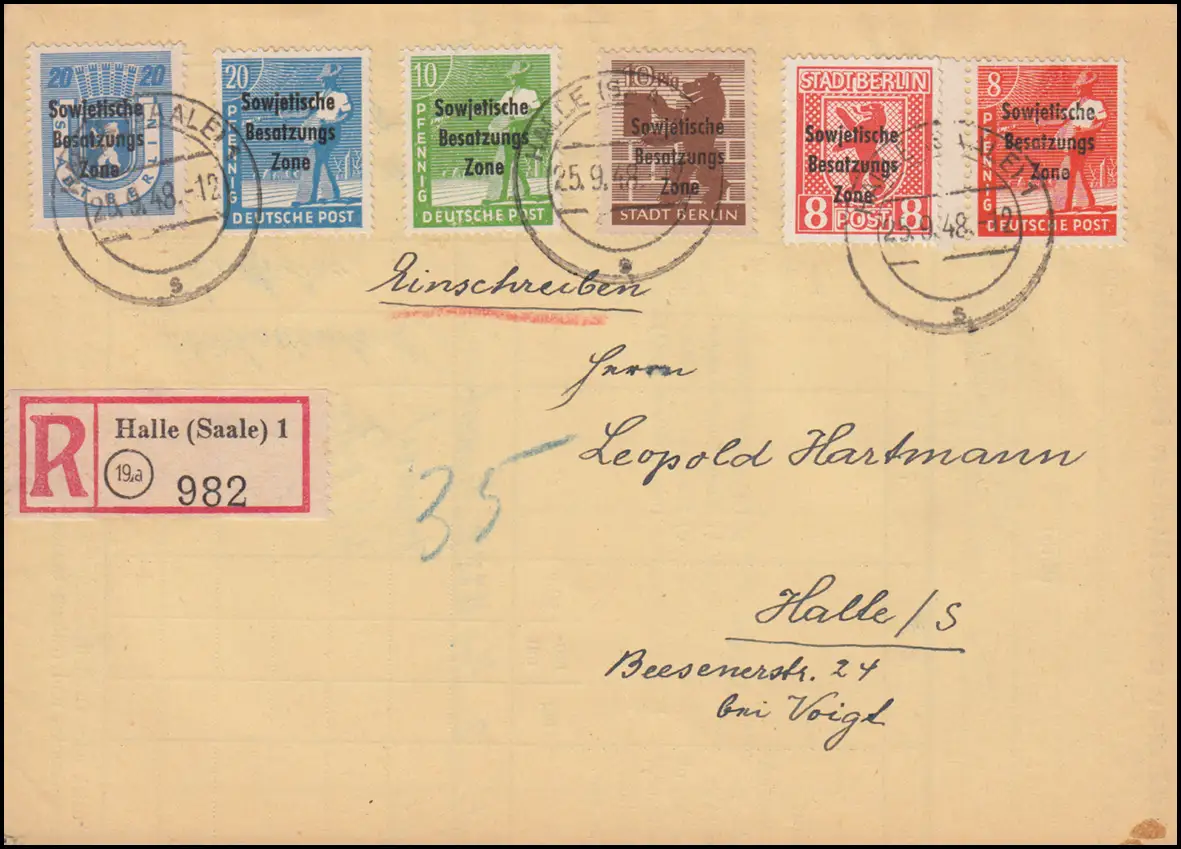 20 20
Sowjetische
Besatzungs
Zone
STADT BERLIN
20
PFENNIG
Sowjetische
Besatzungs
Zone
DEUTSCHE POST
10
PFENNIG
Sowjetische
Besatzungs
Zone
DEUTSCHE POST
10 Pfg
Sowjetische
Besatzungs
Zone
STADT BERLIN
STADT BERLIN
Sowjetische
Besatzungs
Zone
8 POST 8
8
PFENNIG
Sowjetische
Besatzungs
Zone
DEUTSCHE POST
25.9.48.-12
s
HALLE (S
25.9.48
s
25.9.48.-12
s
Einschreiben
Herrn
Leopold Hartmann
R
Halle (Saale) 1
19a
982
35
Halle/S
Beesenerstr. 24
bei Voigt